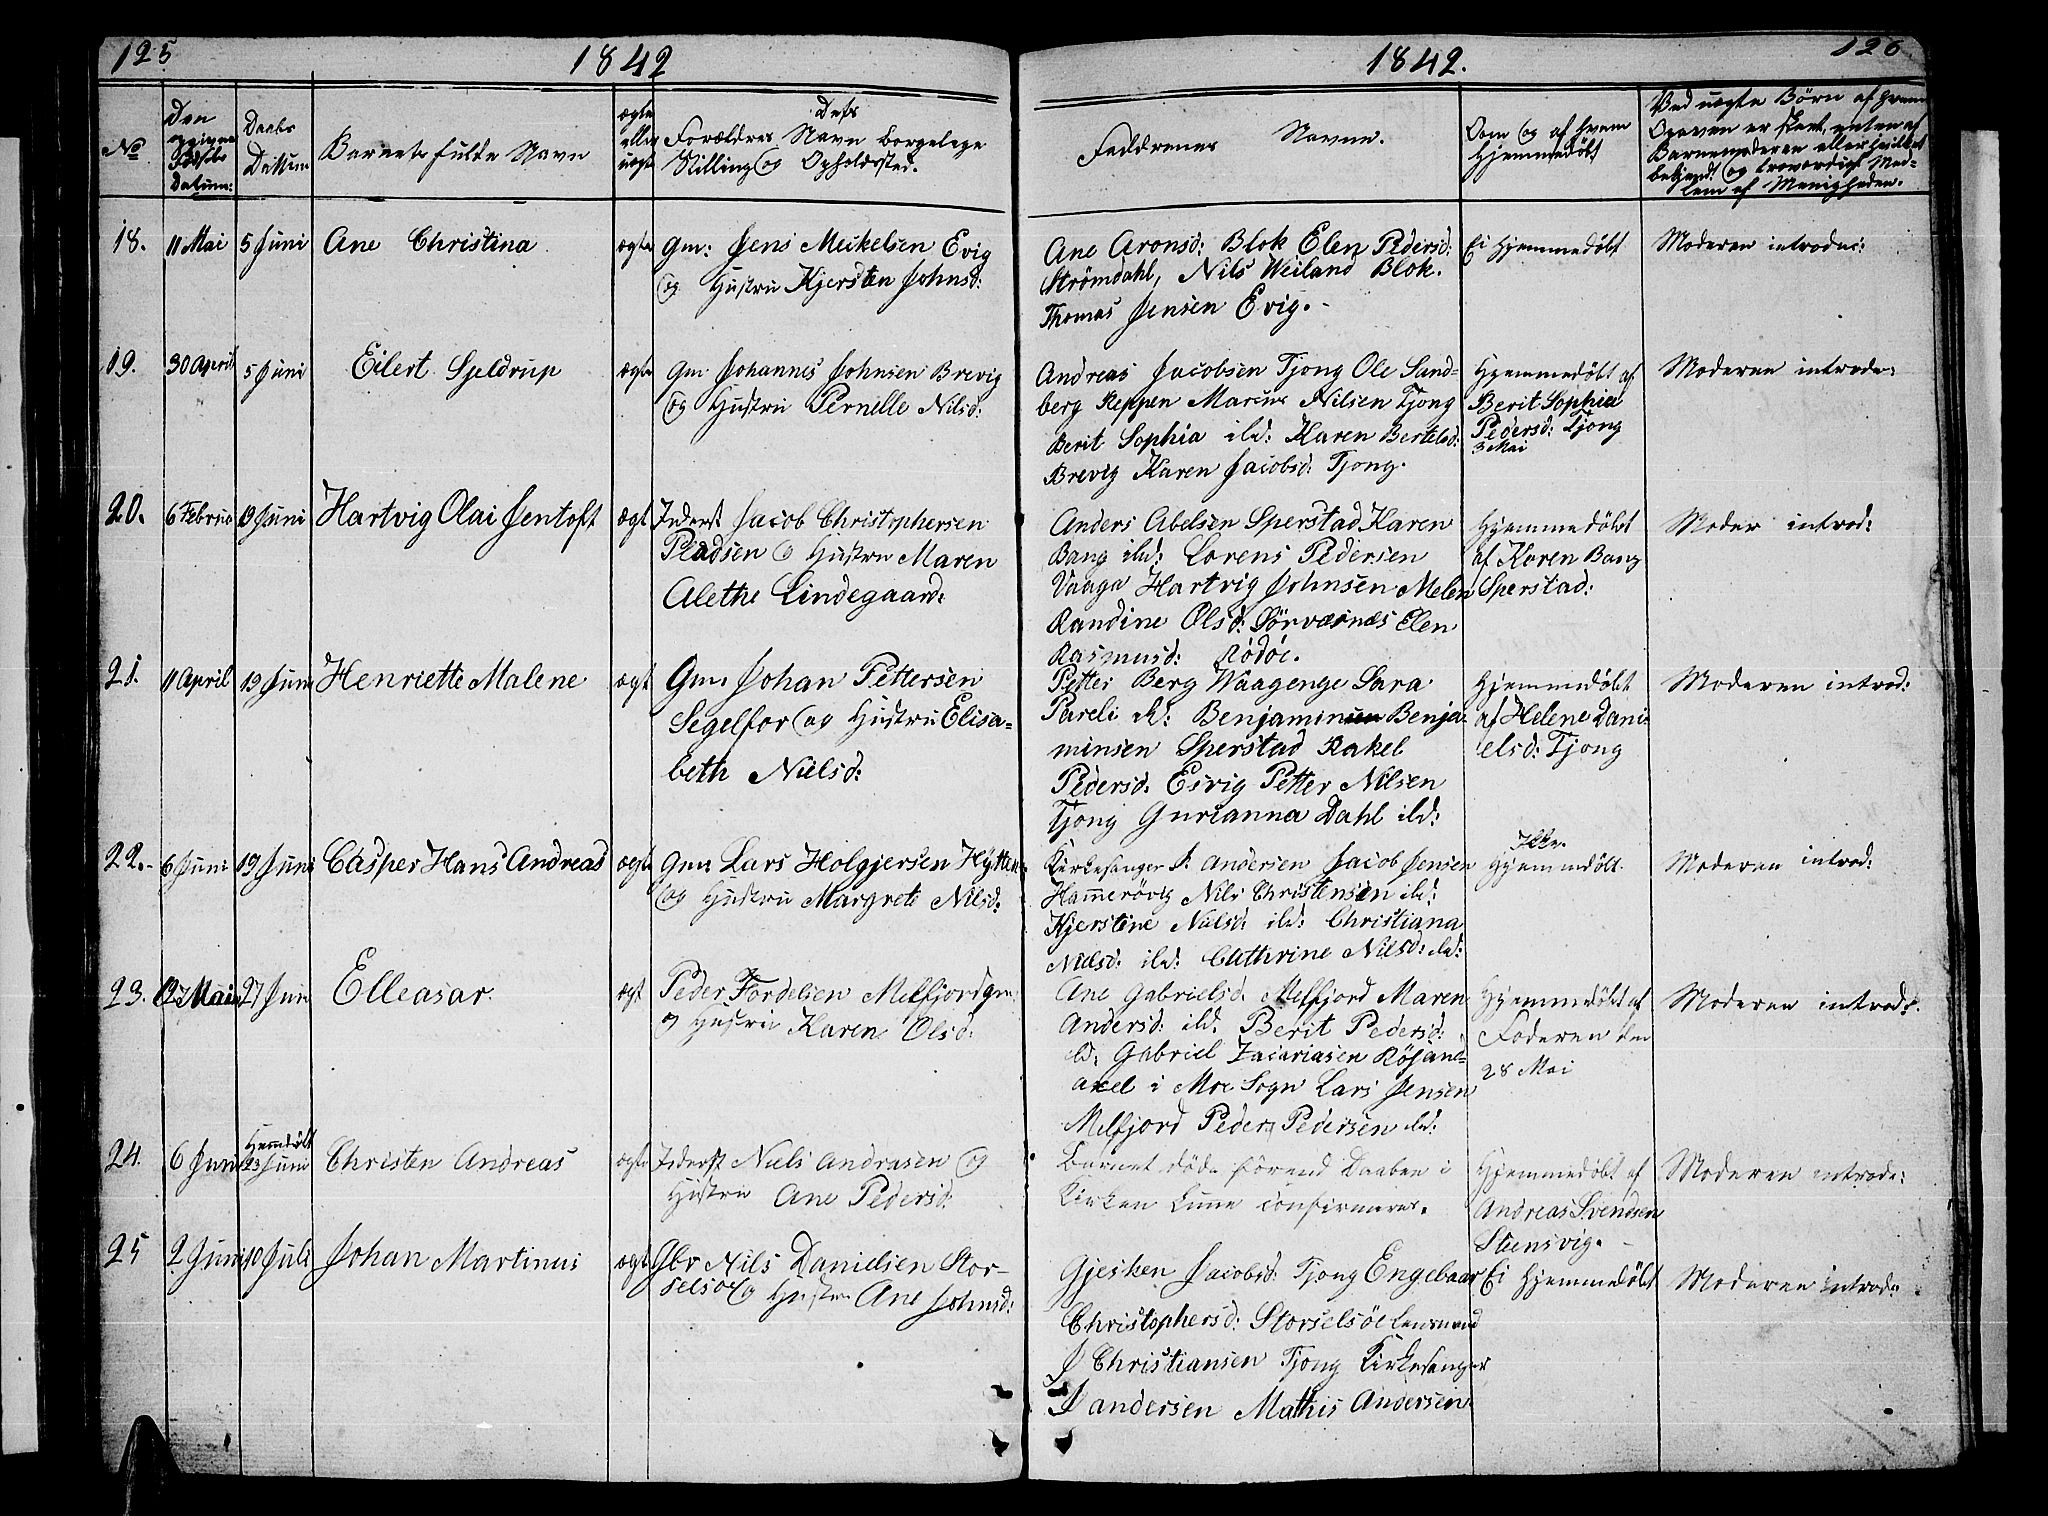 125
1842
1842.
126
No
Den opgivne Fødsels Datum:
Daabs Dattum
Barnets fulde Navn
ægte eller uægt
Forældres Navn borgelege
Stilling og Opholdssted.
Faddrenes Navne.
Om og af hvem
Hjemmedøbt
Ved uægte Børn af hvem
Opgaven er skeet, enten af
Barnemoderen eller hvilket
bekjendt og troværdigt Med-
lem af Menigheden.
18. 11 Mai 5 Juni Ane Christina ægte Gm: Jens Meikelsen Evig
og Hustru Kjersten Johnsd:
Ane Aronsd: Blok Elen Pedersd:
Strømdahl, Nils Weiland Blok.
Thomas Jensen Evig.
Ei Hjemmedøbt
Moderen introduc:
19. 30 April 5 Juni Eilert Sjeldrup ægte Gm Johannes Johnsen Brevig
og Hustru Pernelle Nilsd:
Andreas Jacobsen Tjong Ole Sand-
berg Reppen Marcus Nilsen Tjong
Berit Sophia ild: Karen Bertelsd:
Brevig Karen Jacobsd: Tjong.
Hjemmedøbt af
Berit Sophia
Pedersd: Tjong
3 Mai
Moderen introde:
20. 6 Februa 19 Juni Hartvig Olai Jentoft ægt Inderst Jacob Christophersen
Pladsen og Hustru Maren
Alethe Lindegaard:
Anders Abelsen Sperstad Karen
Bang ild: Lorens Pedersen
Vaaga Hartvig Johnsen Melen
Randine Olsd: Sörværnæs Elen
Rasmusd: Rödöe.
Hjemmedøbt
af Karen Bang
Sperstad:
Moder introd:
21. 11 April 19 Juni Henriette Malene ægt Gm. Johan Pettersen
Segelfor og Hustru Elisa-
beth Nielsd:
Petter Berg Waagenge Sara
Pareli ild: Benjaminsen Benja-
minsen Sperstad Rakel
Pedersd: Esvig Petter Nilsen
Tjong Gurianna Dahl ild:
Hjemmedøbt
af Helene Dani
elsd: Tjong
Moderen introd:
22. 6 Juni 19 Juni Casper Hans Andreas ægte Gm Lars Holgjersen Hytten
og Hustru Margrete Nilsd:
Kirkesanger J. Andersen Jacob Jensen
Hammerövig Nils Christensen ild:
Kjerstine Nielsd: ild: Christiana
Nielsd: ild: Cathrine Nilsd: ild:
Ikke
Hjemmedøbt
Moderen introd:
23. 27 Mai 27 Juni Elleasar ægt Peder Fordelsen Melfjord gm:
og Hustru Karen Olsd:
Ane Gabrielsd. Melfjord Maren
Andersd: ild. Berit Pedersd:
ild: Gabriel Zacariasen Röjand-
axel i Moe Sogn Lars Jensen
Melfjord Peder Pedersen ild:
Hjemmedøbt af
Faderen den
28 Mai
Moderen introd:
24. 6 Juni Hjemdøbt
23 Juni Christen Andreas ægte Inderst Niels Andrasen og
Hustru Ane Pedersd:
Barnet döde förend Daaben i
Kirken kune confirmeres.
Hjemmedøbt af
Andreas Svendsen
Stensvig.
Moderen introde:
25 2 Juni 10 Juli Johan Martinus ægt Gbr Nils Danielsen Stor-
selsö og Hustru Ane Johnsd:
Gjesken Jacobsd: Tjong Engebaar
Christophersd: Storselsöe Lensmand
J Christiansen Tjong Kirkesanger
J andersen Mathis Andersen
Ei Hjemmedøbt
Moderen introd: